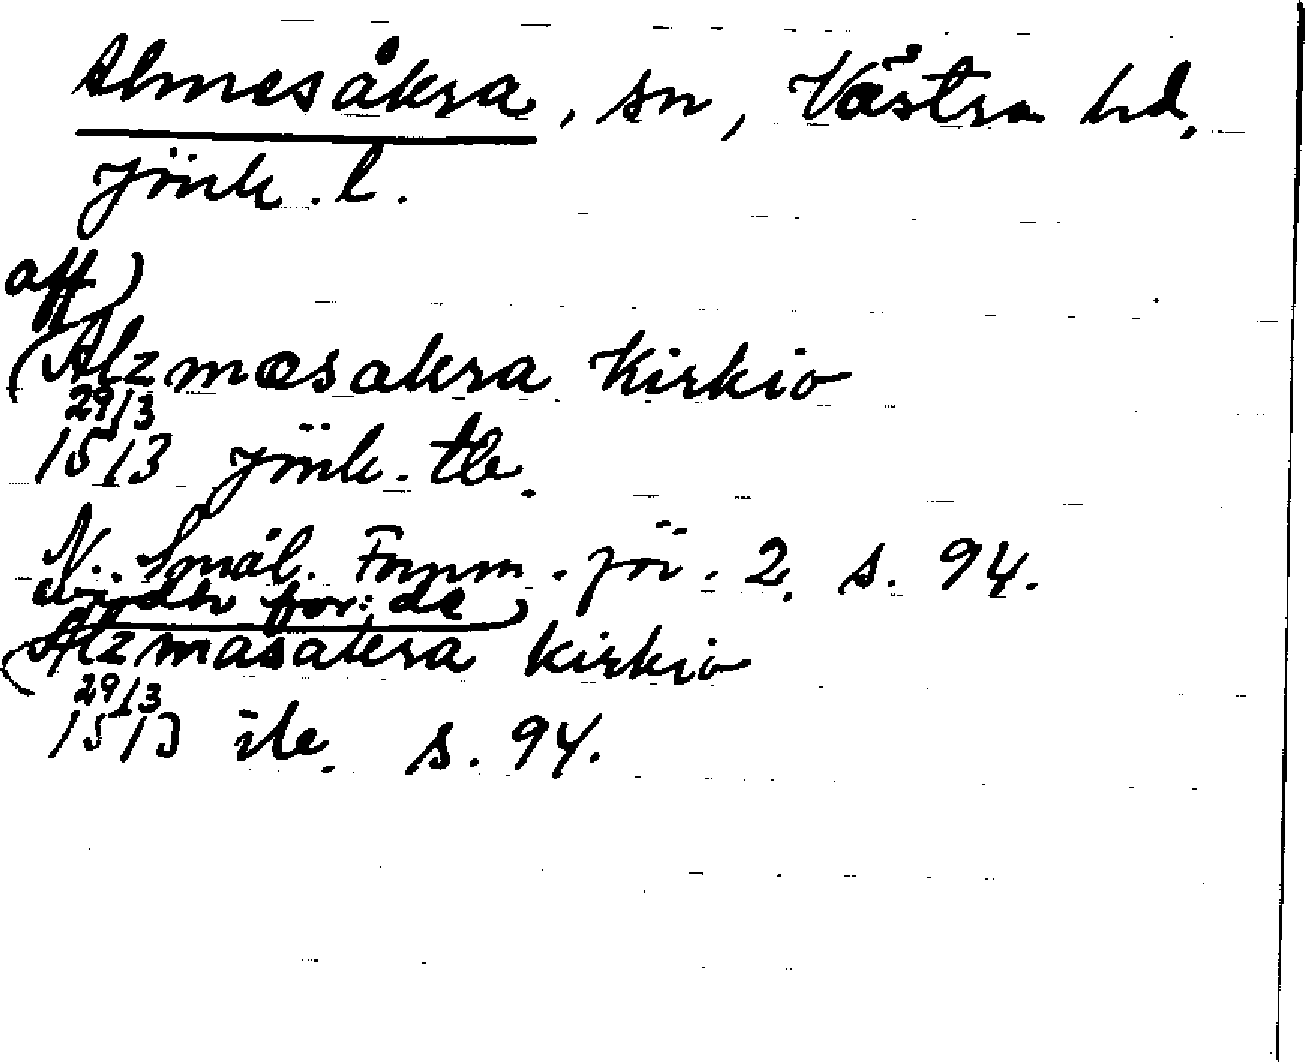 Almesåkra, sn, Västra hd,
Jönk. l.
aff)
(Alzmæsakra Kirkio
29/3
1513 Jönk. tb.
N. Smål. Fornm. för. 2, s. 94.
for: de)
(Alzmasakra kirkio
29/3
1513 ib. s. 94.